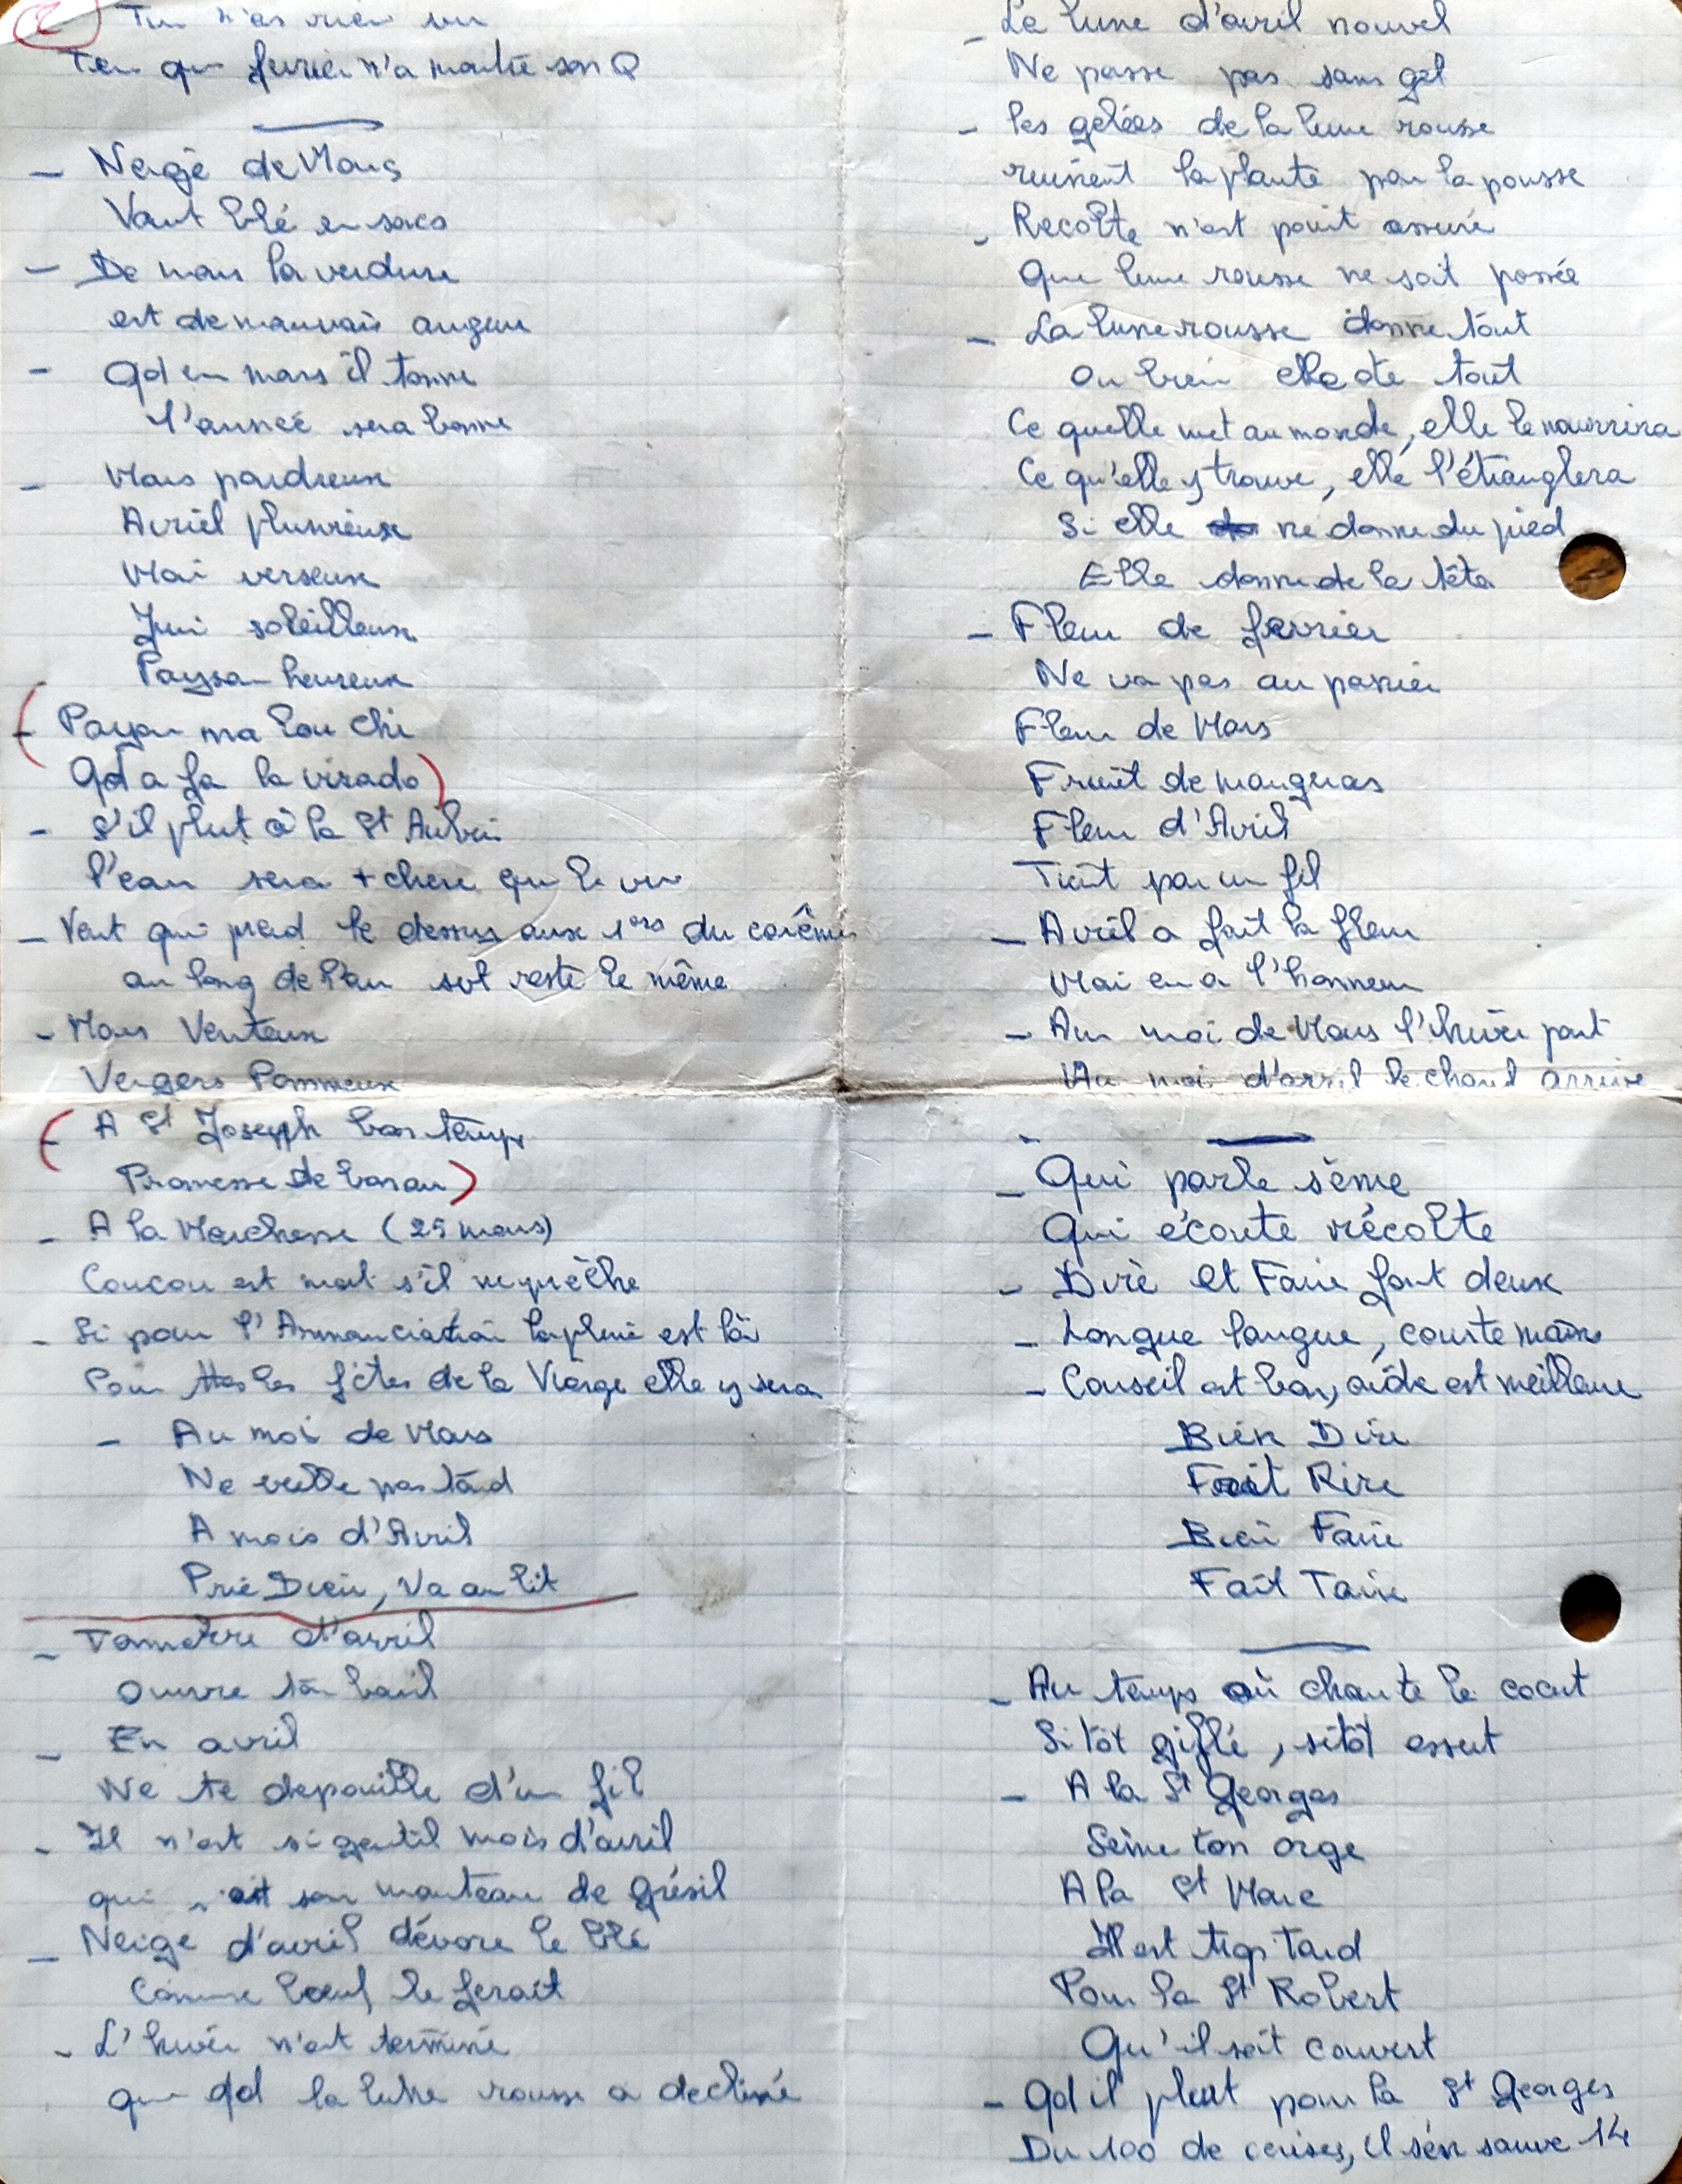 2
Tu n'as rien vu
Tem que fevrier n'a montré son Q
- Neige de Mars
Vaut blé en sacs
- De mars la verdure
est de mauvais augure
- Qd en mars il tonne
l'année sera bonne
- Mars poudreux
Avril pluvieux
Mai verseux
Juin soleilleux
Paysan heureux
(- Payou ma lou chi
Qd a fa la virado)
- S'il pleut à la St Aubin
l'eau sera + chere que le vin
- Vent qui prend le dessus aux 1ers du carême
au long de l'an sol reste le même
- Mars Venteux
Vergers Pommeux
(- A St Joseph bon temps
Promesse de bon an)
- A la Marchesse (25 mars)
Coucou est mort s'il ne prêche
- Si pour l'Annonciation la pluie est là
Pour ttes les fêtes de la Vierge elle y sera
- Au moi de Mars
Ne veille pas tard
A mois d'Avril
Prie Dieu, Va au lit
- Tonnerre d'avril
Ouvre ton baril
- En avril
Ne te depouille d'un fil
- Il n'est si gentil mois d'avril
qui n'ait son manteau de grésil
- Neige d'avril dévore le blé
Comme boeuf le ferait
- L'hiver n'est terminé
que qd la lune rousse a decliné
- La lune d'avril nouvel
Ne passe pas sans gel
- les gelées de la lune rousse
ruinent la plante par la pousse
- Recolte n'est point assuré
Que lune rousse ne soit passée
- La lune rousse donne tout
Ou bien elle ote tout
Ce quelle met au monde, elle le nourrira
Ce qu'elle y trouve, elle l'étranglera
Si elle ne donne du pied
Elle donne de la tête
- Fleur de fevrier
Ne va pas au panier
Fleur de Mars
Fruit de mangeras
Fleur d'Avril
Tient par un fil
- Avril a fait la fleur
Mai en a l'honneur
- Au moi de Mars l'hiver part
Au moi d'avril le chaud arrive
- Qui parle sème
Qui écoute récolte
- Dire et Faire font deux
- Longue langue, courte mains
- Conseil est bon, aide est meilleure
Bien Dire
Fait Rire
Bien Faire
Fait Taire
- Au temps où chante le cocut
Sitôt giflé, sitôt essut
- A la St Georges
Sème ton orge
A la St Marc
Il est trop tard
Pour la St Robert
Qu'il soit couvert
- Qd il pleut pour la St Georges
Du 100 de cerises, il s'en sauve 14